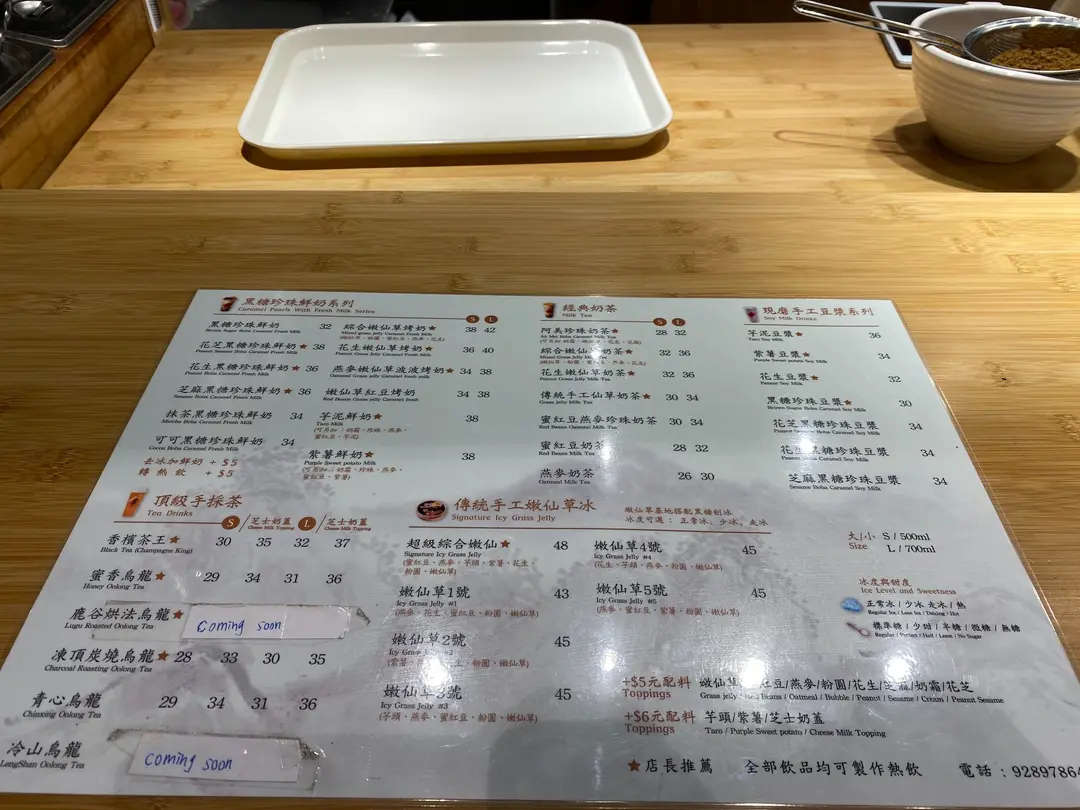 黑糖珍珠鮮奶系列
Caramel Pearls With Fresh Milk Series
S L
黑糖珍珠鮮奶 32
Brown Sugar Boba Caramel Fresh Milk
花芝黑糖珍珠鮮奶★ 38
Peanut Sesame Boba Caramel Fresh Milk
花生黑糖珍珠鮮奶★ 36
Peanut Boba Caramel Fresh Milk
芝麻黑糖珍珠鮮奶★ 36
Sesame Boba Caramel Fresh Milk
抹茶黑糖珍珠鮮奶 34
Matcha Boba Caramel Fresh Milk
可可黑糖珍珠鮮奶 34
Cocoa Boba Caramel Fresh Milk
去冰加鮮奶 + $5
轉熱飲 + $5
綜合嫩仙草烤奶★ 38 42
Mixed grass Jelly Caramel Fresh Milk
花生嫩仙草烤奶★ 36 40
Peanut Grass Jelly Caramel Fresh Milk
燕麥嫩仙草波波烤奶★ 34 38
Oatmeal Grass jelly Caramel Fresh milk
嫩仙草紅豆烤奶 34 38
Red Beans Grass jelly Caramel fresh
芋泥鮮奶★ 38
Taro Milk
(可另加：奶霜、珍珠、燕麥、
蜜紅豆、芋泥)
紫薯鮮奶★ 38
Purple Sweet potato Milk
(可另加：奶霜、珍珠、燕麥、
蜜紅豆、紫薯)
經典奶茶
Milk Tea
S L
阿美珍珠奶茶★ 28 32
An Mei Boba Caramel Milk Tea
綜合嫩仙草奶茶★ 32 36
Mixed Grass Jelly Milk Tea
花生嫩仙草奶茶★ 32 36
Peanut Grass Jelly Milk Tea
傳統手工仙草奶茶★ 30 34
Grass Jelly Milk Tea
蜜紅豆燕麥珍珠奶茶 30 34
Red Beans Oatmeal Milk Tea
蜜紅豆奶茶 28 32
Red Beans Milk Tea
燕麥奶茶 26 30
Oatmeal Milk Tea
現磨手工豆漿系列
Soy Milk Drinks
芋泥豆漿★ 36
Taro Soy Milk
紫薯豆漿★ 34
Purple Sweet potato Soy Milk
花生豆漿★ 32
Peanut Soy Milk
黑糖珍珠豆漿★ 30
Brown Sugar Boba Caramel Soy Milk
花芝黑糖珍珠豆漿 34
Peanut Sesame Boba Caramel Soy Milk
花生黑糖珍珠豆漿 34
Peanut Boba Caramel Soy Milk
芝麻黑糖珍珠豆漿 34
Sesame Boba Caramel Soy Milk
頂級手採茶
Tea Drinks
S 芝士奶蓋 L 芝士奶蓋
Cheese Milk Topping Cheese Milk Topping
香檳茶王★ 30 35 32 37
Black Tea (Champagne King)
蜜香烏龍★ 29 34 31 36
Honey Oolong Tea
鹿谷烘法烏龍★ coming soon
Lugu Roasted Oolong Tea
凍頂炭燒烏龍★ 28 33 30 35
Charcoal Roasting Oolong Tea
青心烏龍 29 34 31 36
Chinxing Oolong Tea
冷山烏龍 coming soon
LengShan Oolong Tea
傳統手工嫩仙草冰
Signature Icy Grass Jelly
嫩仙草基地搭配黑糖刨冰
冰度可選：正常冰、少冰、走冰
超級綜合嫩仙★ 48
Signature Icy Grass Jelly
(蜜紅豆、燕麥、芋頭、紫薯、花生、
粉圓、嫩仙草)
嫩仙草1號 43
Icy Grass Jelly #1
(燕麥、花生、蜜紅豆、粉圓、嫩仙草)
嫩仙草2號 45
Icy Grass Jelly #2
嫩仙草3號 45
Icy Grass Jelly #3
(芋頭、燕麥、蜜紅豆、粉圓、嫩仙草)
嫩仙草4號 45
Icy Grass Jelly #4
(花生、芋頭、燕麥、粉圓、嫩仙草)
嫩仙草5號 45
Icy Grass Jelly #5
(燕麥、蜜紅豆、紫薯、粉圓、嫩仙草)
大/小 S / 500ml
Size L / 700ml
冰度與甜度
Ice Level and Sweetness
正常冰 / 少冰 走冰 / 熱
Regular Ice / Less Ice / Deicing / Hot
標準糖 / 少甜 / 半糖 / 微糖 / 無糖
Regular / Perfect / Half / Less / No Sugar
+$5元配料 嫩仙草/紅豆/燕麥/粉圓/花生/芝麻/奶霜/花芝
Toppings Grass jelly / Red Beans / Oatmeal / Bubble / Peanut / Sesame / Cream / Peanut Sesame
+$6元配料 芋頭/紫薯/芝士奶蓋
Toppings Taro / Purple Sweet potato / Cheese Milk Topping
★店長推薦 全部飲品均可製作熱飲 電話：92897864